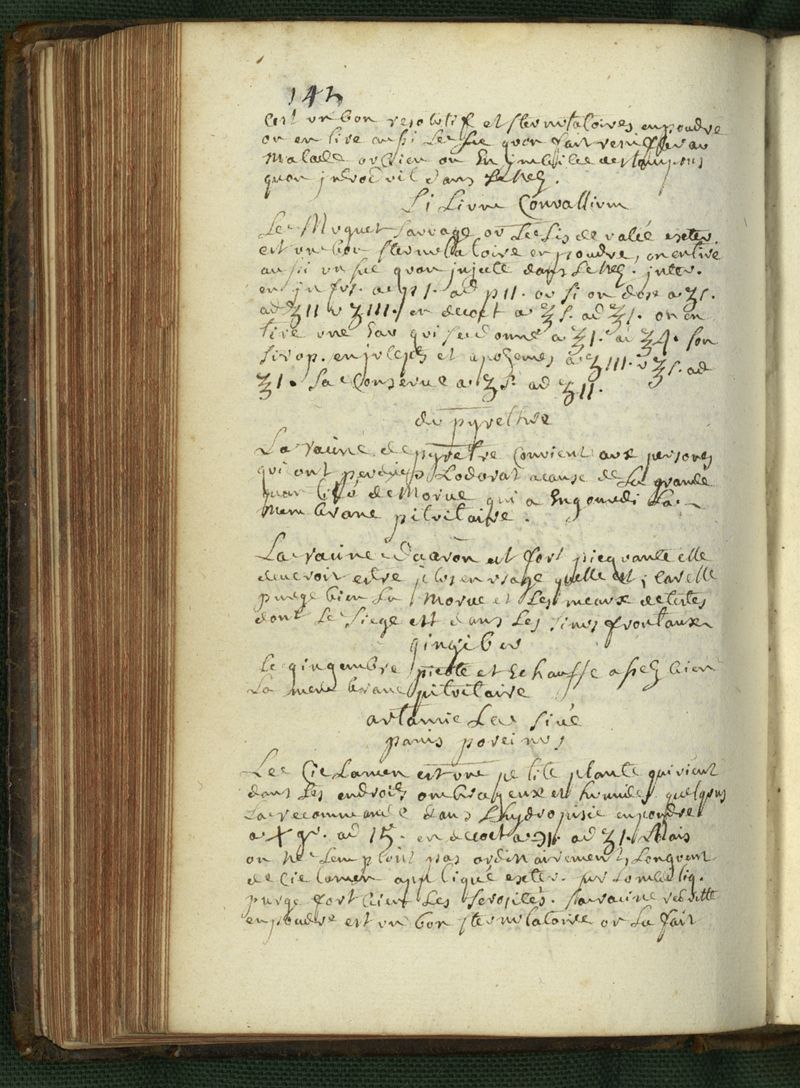 142
C'est un bon resolutif et sternutatoires en poudre
on en tire aussi le suc quon fait renifler au
Malade ou bien on En imbibe des tampons
quon introduit dans Le Nez.
Li Lium Convallium
Le Muguet sauvage ou Le Lis de valée exter.
est un bon sternutatoire en poudre, on en tire
aussi un suc quon injecte dans Le Nez. inter.
en infus. a p I. ad p II. ou si on dose a ʒ s.
ad ʒ II v ʒ III. en decoct a ʒ s. ad ʒ I. on en
tire une Eau qui se donne a ʒ I. ad ʒ 4. son
sirop. en juleps et apozemes a ʒ III. v ʒ s. ad
ʒ I. sa Conserve a ʒ s. ad ʒ II.
du pyrethre
La racine de pyretre convient aux personnes
qui ont perdues Lodorat a cause de La grande
quantité de Morve qui a Engourdi La
Membrane pituitaire.
La racine d'aaron est fort picquante elle
devroit estre plus en usage quelle est, car elle
purge bien La Morve et Les meaux de testes
dont Le siege est dans Les sinus frontaux
gingiber
Le gingembre picote et Echauffe assez bien
La membrane pituitaire
artanite Lae sive
panis porcinus
Le Ciclamen est une petite plante qui vient
dans Les endroits ombrageux et humides quelqu'uns
La recommande dans L'hydropisie en poudre
a X gr. ad 15. en decoct a ʒ I. Mais
on Ne Lemploit pas ordinairement, Longuent
de Ciclamen appliqué exter. sur Lombilig.
purge fort bien Les serosités. sa racine
en poudre est un bon sternutatoire on La fait